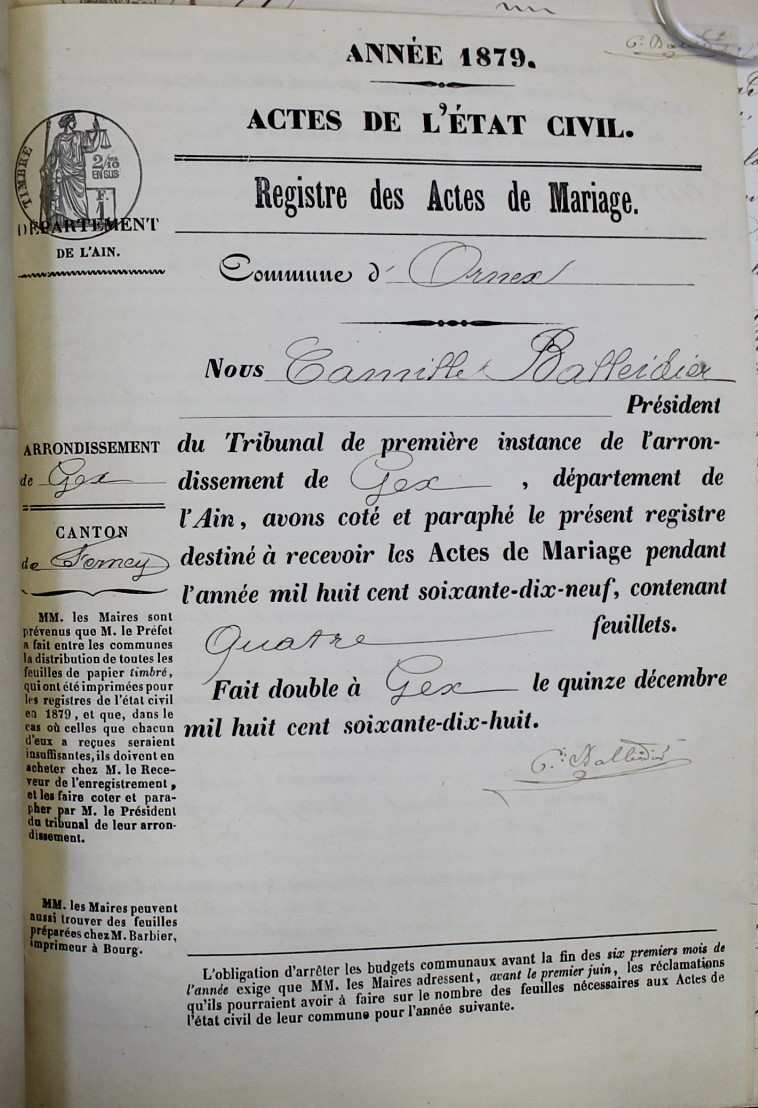 ANNÉE 1879.
ACTES DE L'ÉTAT CIVIL.
TIMBRE
2/10
EN SUS
F.
1
DÉPARTEMENT
DE L'AIN.
Registre des Actes de Mariage.
Commune d' Ornex
Nous Camille Balleidier
Président
du Tribunal de première instance de l'arron-
dissement de Gex, département de
l'Ain, avons coté et paraphé le présent registre
destiné à recevoir les Actes de Mariage pendant
l'année mil huit cent soixante-dix-neuf, contenant
Quatre feuillets.
Fait double à Gex le quinze décembre
mil huit cent soixante-dix-huit.
C. Balleidier
ARRONDISSEMENT
de Gex
CANTON
de Ferney
MM. les Maires sont
prévenus que M. le Préfet
a fait entre les communes
la distribution de toutes les
feuilles de papier timbré,
qui ont été imprimées pour
les registres de l'état civil
en 1879, et que, dans le
cas où celles que chacun
d'eux a reçues seraient
insuffisantes, ils doivent en
acheter chez M. le Rece-
veur de l'enregistrement,
et les faire coter et para-
pher par M. le Président
du tribunal de leur arron-
dissement.
MM. les Maires peuvent
aussi trouver des feuilles
préparées chez M. Barbier,
imprimeur à Bourg.
L'obligation d'arrêter les budgets communaux avant la fin des six premiers mois de
l'année exige que MM. les Maires adressent, avant le premier juin, les réclamations
qu'ils pourraient avoir à faire sur le nombre des feuilles nécessaires aux Actes de
l'état civil de leur commune pour l'année suivante.